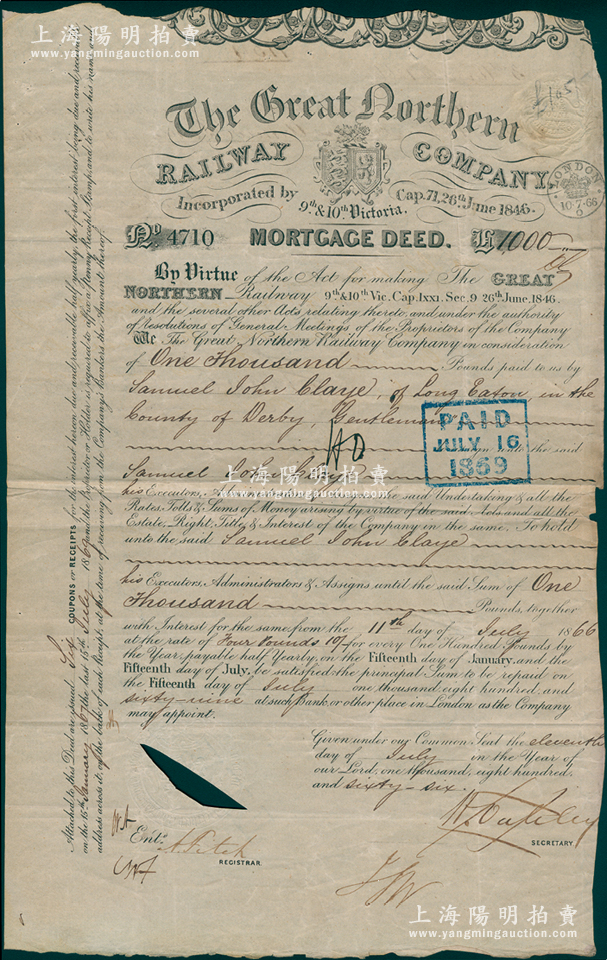 上海陽明拍賣
www.yangmingauction.com
上海陽明拍賣
www.yangmingauction.com
The Great Northern
RAILWAY COMPANY,
Incorporated by 9th & 10th Victoria. Cap. 71, 26th June 1846.
LONDON
10·7·66
No 4710 MORTGAGE DEED. £1,000
By Virtue of the Act for making The GREAT
NORTHERN Railway 9th & 10th Vic. Cap. lxxi. Sec. 9 26th June. 1846.
and the several other Acts relating thereto, and under the authority
of Resolutions of General Meetings of the Proprietors of the Company
We The Great Northern Railway Company in consideration
of One Thousand Pounds paid to us by
Samuel John Claye, of Long Eaton, in the
County of Derby, Gentleman
PAID
JULY 16
1869
the said
Samuel John
his Executors, the said Undertaking & all the
Rates, Tolls & Sums of Money arising by virtue of the said Acts and all the
Estate, Right, Title & Interest of the Company in the same. To hold
unto the said Samuel John Claye
his Executors, Administrators & Assigns until the said Sum of One
Thousand Pounds, together
with Interest for the same from the 11th day of July 1866
at the rate of Four Pounds 10/- for every One Hundred Pounds by
the Year, payable half Yearly, on the Fifteenth day of January, and the
Fifteenth day of July, be satisfied the principal Sum to be repaid on
the Fifteenth day of July one thousand, eight hundred, and
sixty-nine at such Bank, or other place in London as the Company
may appoint.
Given under our Common Seal the eleventh
day of July in the Year of
our Lord, one thousand, eight hundred,
and sixty-six.
SECRETARY.
Entd.
REGISTRAR.
Attached to this Deed are issued Six COUPONS or RECEIPTS for the interest hereon due and receivable half yearly, the first interest being due and
on the 15th January 1867 the last 15th July 1869 and the Proprietor or Holder is required to affix a Penny Receipt Stamp, and to write his name and
address across it, on the back of such Receipt, at the time of receiving from the Company's Bankers the Amount thereof.
上海陽明拍賣
www.yangmingauction.com
上海陽明拍賣
www.yangmingauction.com